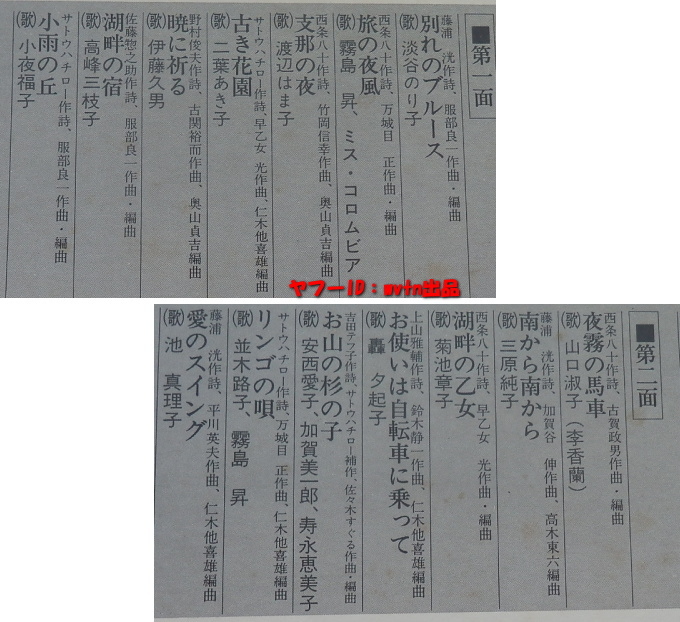 ■第一面
藤浦　洸作詩、服部良一作曲・編曲
別れのブルース
（歌）淡谷のり子
西条八十作詩、万城目　正作曲・編曲
旅の夜風
（歌）霧島　昇、ミス・コロムビア
西条八十作詩、竹岡信幸作曲、奥山貞吉編曲
支那の夜
（歌）渡辺はま子
サトウハチロー作詩、早乙女　光作曲、仁木他喜雄編曲
古き花園
（歌）二葉あき子
野村俊夫作詩、古関裕而作曲、奥山貞吉編曲
暁に祈る
（歌）伊藤久男
佐藤惣之助作詩、服部良一作曲・編曲
湖畔の宿
（歌）高峰三枝子
サトウハチロー作詩、服部良一作曲・編曲
小雨の丘
（歌）小夜福子
ヤフーID：wvfn出品
■第二面
西条八十作詩、古賀政男作曲・編曲
夜霧の馬車
（歌）山口淑子（李香蘭）
藤浦　洸作詩、加賀谷　伸作曲、高木東六編曲
南から南から
（歌）三原純子
西条八十作詩、早乙女　光作曲・編曲
湖畔の乙女
（歌）菊池章子
上山雅輔作詩、鈴木静一作曲、仁木他喜雄編曲
お使いは自転車に乗って
（歌）轟　夕起子
吉田テフ子作詩、サトウハチロー補作、佐々木すぐる作曲・編曲
お山の杉の子
（歌）安西愛子、加賀美一郎、寿永恵美子
サトウハチロー作詩、万城目　正作曲、仁木他喜雄編曲
リンゴの唄
（歌）並木路子、霧島　昇
藤浦　洸作詩、平川英夫作曲、仁木他喜雄編曲
愛のスイング
（歌）池　真理子